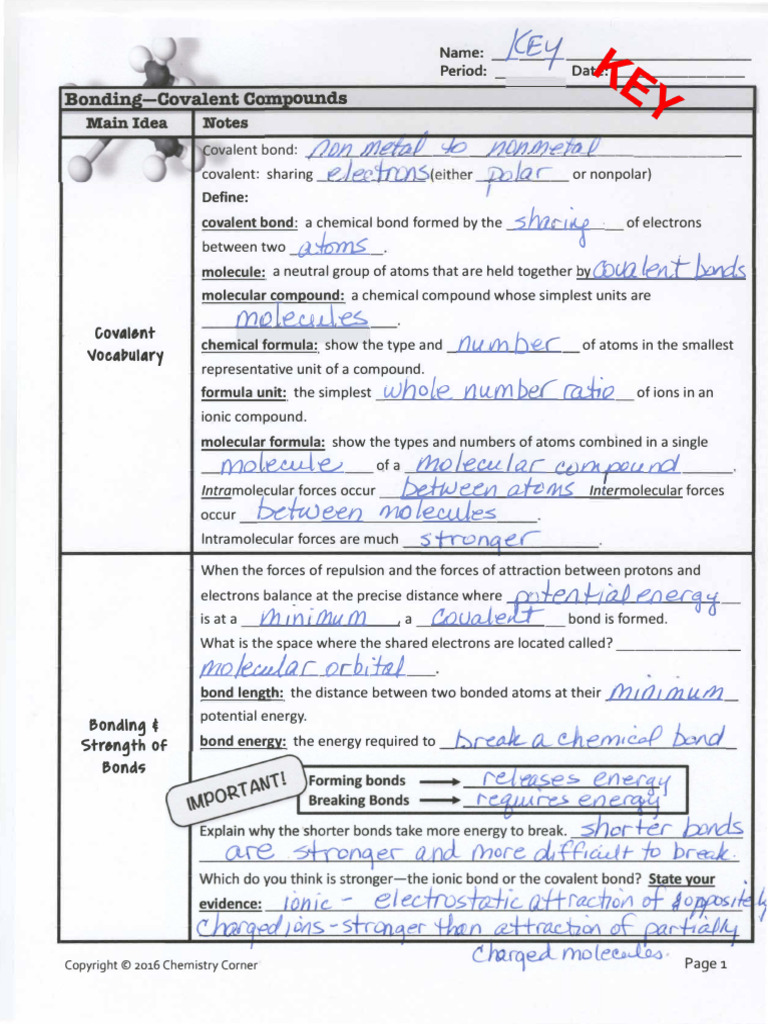 Name: KEY
Period: Date:
KEY
Bonding—Covalent Compounds
Main Idea Notes
Covalent bond: non metal to nonmetal
covalent: sharing electrons (either polar or nonpolar)
Define:
covalent bond: a chemical bond formed by the sharing of electrons
between two atoms.
molecule: a neutral group of atoms that are held together by covalent bonds
molecular compound: a chemical compound whose simplest units are
molecules.
Covalent
Vocabulary
chemical formula: show the type and number of atoms in the smallest
representative unit of a compound.
formula unit: the simplest whole number ratio of ions in an
ionic compound.
molecular formula: show the types and numbers of atoms combined in a single
molecule of a molecular compound.
Intramolecular forces occur between atoms Intermolecular forces
occur between molecules.
Intramolecular forces are much stronger.
When the forces of repulsion and the forces of attraction between protons and
electrons balance at the precise distance where potential energy
is at a minimum, a covalent bond is formed.
What is the space where the shared electrons are located called?
molecular orbital.
bond length: the distance between two bonded atoms at their minimum
potential energy.
Bonding &
Strength of
Bonds
bond energy: the energy required to break a chemical bond
IMPORTANT!
Forming bonds releases energy
Breaking Bonds requires energy
Explain why the shorter bonds take more energy to break. shorter bonds
are stronger and more difficult to break.
Which do you think is stronger—the ionic bond or the covalent bond? State your
evidence: ionic - electrostatic attraction of oppositely
charged ions - stronger than attraction of partially
charged molecules.
Copyright © 2016 Chemistry Corner Page 1